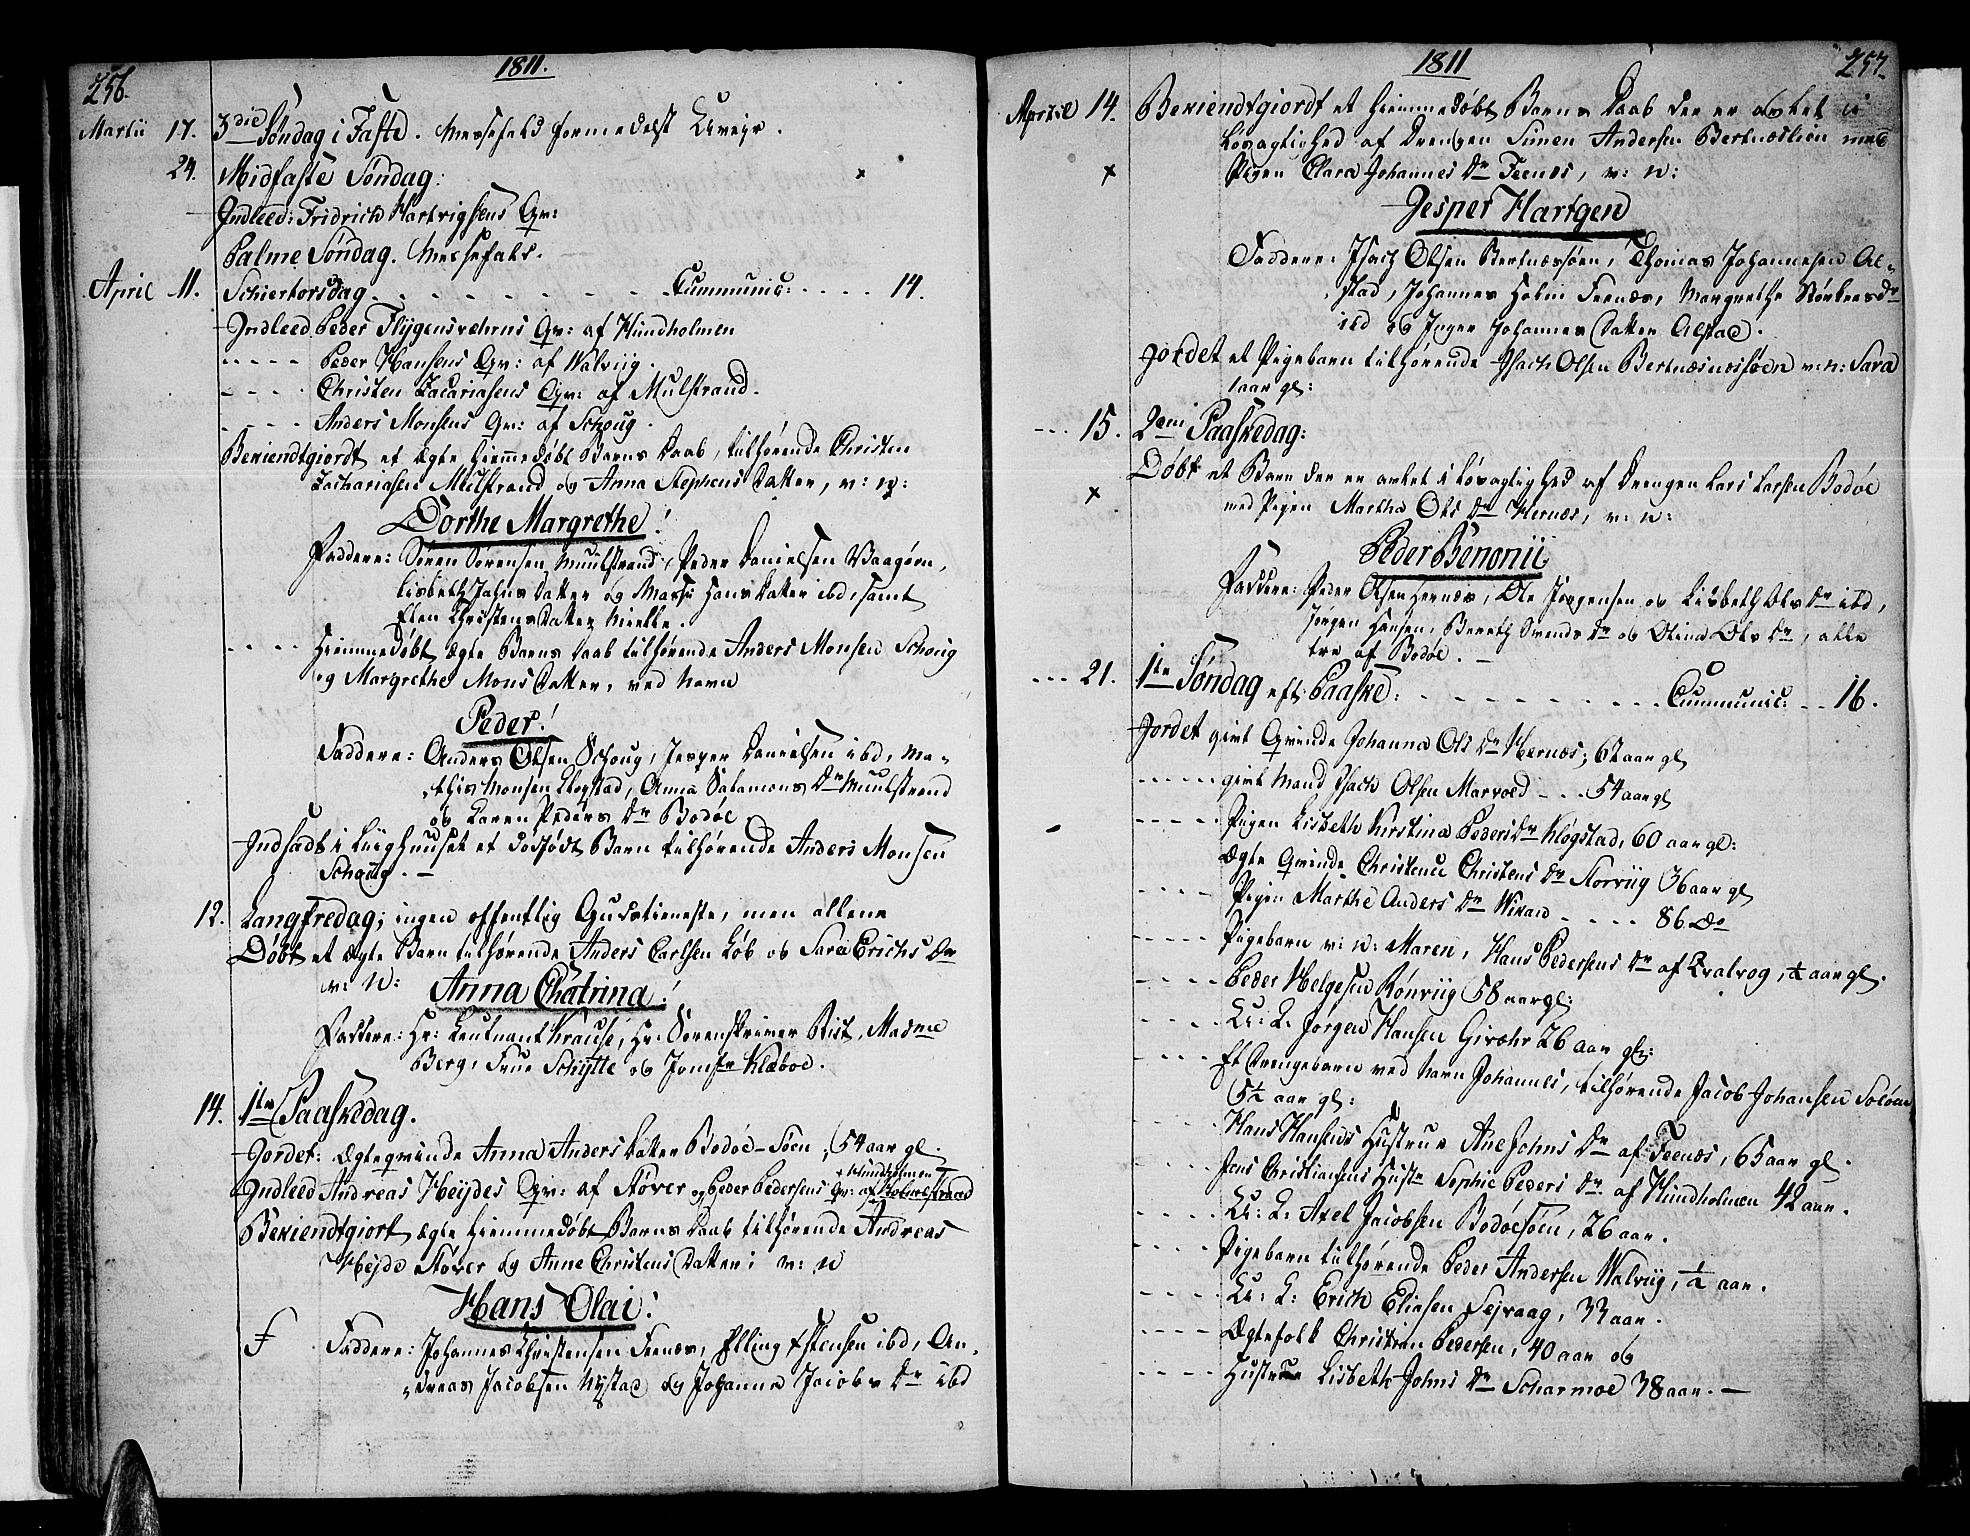 256.
1811.
Martii 17. 3die Søndag i Faste. Messefald formedelst Uveijr.
24. Midfaste Søndag:
Indleed: Fridrich Hartvigsens Qv:
Palme Søndag. Messefald.
April 11. Schiertorsdag - - - - - Communic: - - - - 14.
Indleed Peder Flygensvæhrns Qv: af Hundholmen
- - - - - Peder Hansens Qv: af Walviig.
- - - - Christen Zacariasens Qv: af Mulstrand.
- - - - Anders Monsens Qv: af Schoug.
Bekiendtgiordt et ægte hiemmedøbt Barns Daab, tilhørende Christen
Zachariasen Mulstrand og Anna Stephens Datter, v: n:
Dorthe Margrethe!
Faddere: Søren Sørensen Muulstrand, Peder Danielsen Vaagøen,
Lisbeth Jahns Datter og Hans Datter ibd, samt
Elen Christens Datter Mielle.
- - - - Hiemmedøbt ægte Barns Daab tilhørende Anders Monsen Schoug
og Margrethe Mons Datter, ved Navn
Peder!
Faddere: Anders Olsen Schoug, Jesper Danielsen ibd, Ma-
this Monsen Klogstad, Anna Salamons Dr Muulstrand
og Karen Peders Dr Bodøe.
Indsadt i Liighuuset et dødfødt Barn tilhørende Anders Monsen
Schoug. —
12. Langfredag; ingen offentlig Gudstieneste, men allene
Døbt et ægte Barn tilhørende Anders Carlsen Løb og Sara Erichs Dr
v: N: Anna Chatrina!
Faddere: Hr: Leutnant Krause, Hr: Sorenskriver Rist, Madme
Berg, Frue Schytte og Jomfr Klæboe.
14. 1te Paaskedag.
Jordet: Ægteqvinde Anna Anders Datter Bodøe-Søen, 54 aar gl.
+ Hundholmen
Indleed Andreas Heijdes Qv: af Støver og Peder Pedersens Qv: af
Bekiendtgiort ægte hiemmedøbt Barns Daab tilhørende Andreas
Heijde Støver og Anne Christens Datter; v: N
Hans Olai!
F Faddere: Johannes Christensen Feenæs, Elling Estensen ibd, An-
dreas Jacobsen Nystad og Johanna Jacobs Dr ibd
1811
257.
April 14. Bekiendtgiordt et hiemmedøbt Barns Daab der er avlet i
Løsagtighed af Drengen Simen Andersen Bertnæslien med
Pigen Clara Johannes Dr Feenæs, v: N:
Jesper Hartgen
Faddere: Isach Olsen Bertnæssøen, Thomas Johannesen Al-
stad, Johannes Holm Feenæs, Margrethe Dr
ibd og Inger Johannes Datter Alstad.
Jordet et Pigebarn tilhørende Isach Olsen Bertnæssøen v: n: Sara
1 aar gl:
- - - 15. 2den Paaskedag:
Døbt et Barn der er avlet i Løsagtighed af Drengen Lars Larsen Bodøe
med Pigen Martha Ols Dr Hernæs, v: N:
Peder Benonii
Faddere: Peder Olsen Hernæs, Ole Jørgensen og Lisbeth Ols Dr ibd,
Jørgen Hansen, Bereth Svends Dr og Olina Ols Dr, alle
tre af Bodøe. —
- - - 21. 1te Søndag eft: Paaske: - - - - - Communic: - - 16.
Jordet givt Qvinde Johanna Ols Dr Hernæs; 62 aar gl
- - - - - givt Mand Isach Olsen Marvold - - - 54 aar gl
- - - - - Pigen Lisbeth Kirstina Peders Dr Klogstad, 60 aar gl:
Ægte Qvinde Christence Christens Dr Storviig 36 aar gl
- - - - Pigen Marthe Anders Dr Wikan - - - - 86 Do
- - - - Pigebarn v: N: Maren, Hans Pedersens Dr af Qvalvog, ½ aar gl.
- - - - Peder Helgesen Rønviig 58 aar gl:
- - - - U: K: Jørgen Hansen Givæhr 26 aar gl:
- - - - Et Drengebarn ved Navn Johannes, tilhørende Jacob Johansen Soløen
5½ aar gl:
Hans Hansens Hustrue Ane Johns Dr af Feenæs, 65 aar gl.
Jens Christiansens Hustr Sophie Peders Dr af Hundholmen 42 aar.
- - - - U: K: Axel Jacobsen Bodøesøen, 26 aar.
- - - - Pigebarn tilhørende Peder Andersen Walviig, ½ aar.
- - - - U: K: Erich Eliasen Sejvaag, 33 aar.
- - - - Ægtefolk Christian Pedersen, 40 aar og
- - - - Hustrue Lisbeth Johns Dr Scharmoe 38 aar. —